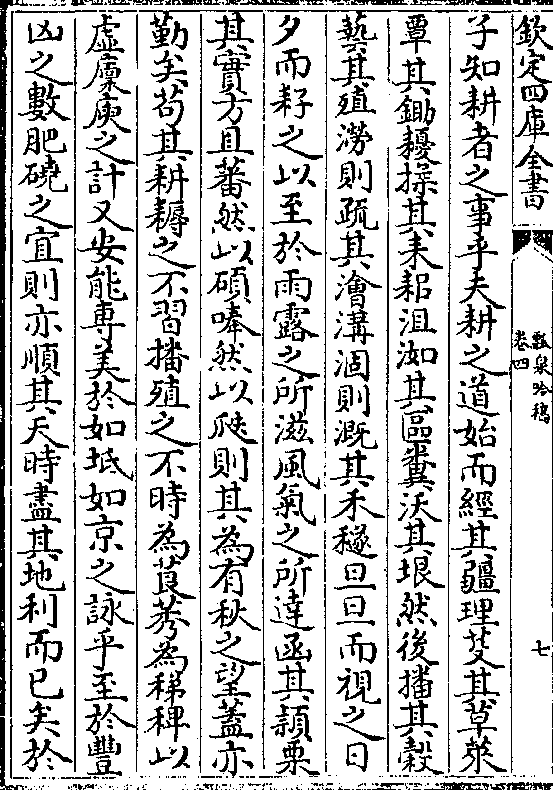 欽定四庫全書
瓢泉吟稿
卷四
七
子知耕者之事乎夫耕之道始而經其疆理芟其草萊
覃其鋤耰揉其耒耜沮洳其區糞沃其垠然後播其穀
藝其殖澇則疏其澮溝涸則溉其禾穟旦旦而視之日
夕而耔之以至於雨露之所滋風氣之所達函其穎栗
其實方且蕃然以碩嗺然以㒓則其為有秋之望蓋亦
勤矣苟其耕耨之不習播殖之不時為莨莠為稊稗以
虛廩庾之計又安能專美於如坻如京之詠乎至於豐
凶之數肥磽之宜則亦順其天時盡其地利而已矣於